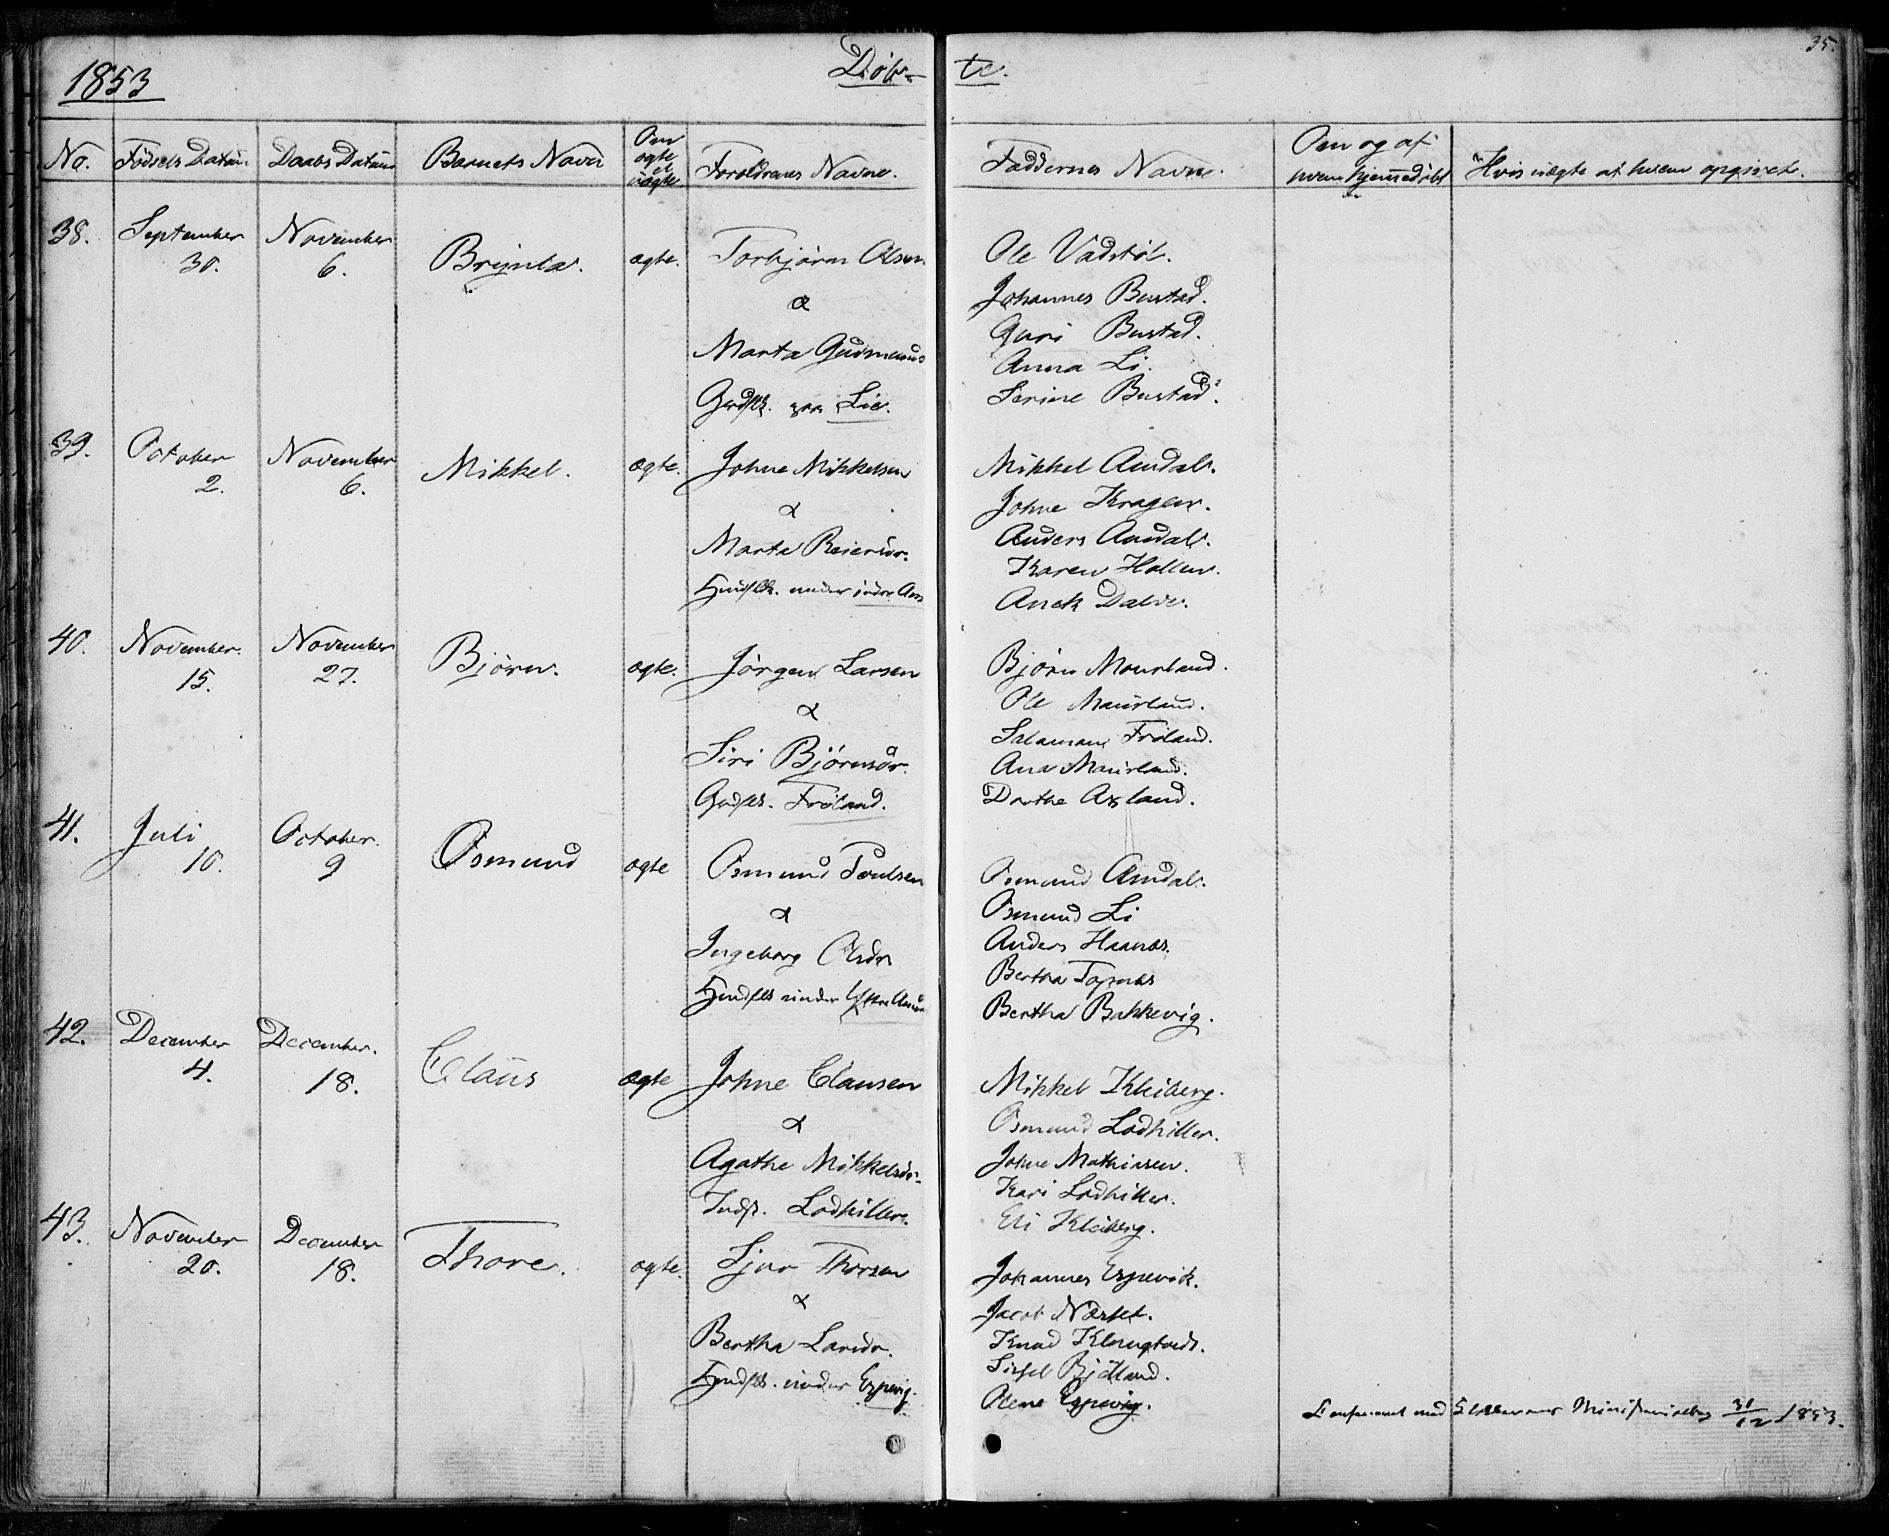 1853
Døb-
te.
35.
No.
Fødsels Datum
Daabs Datum
Barnets Navn
Om ægte el uægte
Forældrenes Navne.
Faddernes Navne.
Om og af hvem hjemmedøbt
Hvis uægte af hvem opgivet.
38.
September 30.
November 6.
Brynla.
ægte.
Torbjørn Olsen
&
Marta Gudmunds
Grdflk. paa Lie.
Ole Vadstøl.
Johannes Bustad.
Guri Bustad.
Anna Li.
Serine Bustad.
39.
October 2.
November 6.
Mikkel.
ægte.
Johne Mikkelsen
&
Marta Reiersdr.
Huusflk. under indre Am
Mikkel Amdal.
Johne Kragen.
Anders Amdal.
Karen Hollen.
Anek Dalve.
40.
November. 15.
November 27.
Bjørn.
ægte.
Jørgen Larsen
&
Siri Bjørnsdr.
Grdflk. Frøland.
Bjørn Mourland.
Ole Maurland.
Salamon Frøland.
Ana Maurland.
Dorthe Axland.
41.
Juli 10.
October. 9
Osmund
ægte
Osmund Poulsen
&
Ingeborg Olsdr
Huusflk under Yttre Am
Osmund Amdal.
Osmund Li
Anders Haanæs.
Bertha
Bertha Bakkevig.
42.
December 4.
December. 18.
Claus
ægte
Johne Clausen
&
Agathe Mikkelsdr.
Indst. Lodhiller.
Mikkel Kleiberg.
Osmund Lodhiller.
Johne Mathiasen.
Kari Lodhiller.
Eli Kleiberg.
43.
November 20.
December 18.
Thore.
ægte.
Sjur Thorsen
&
Bertha Larsdr.
Huusflk. under Espevig.
Johannes Espevik.
Jacob Næsset.
Knud
Sissel Bjelland.
Olene Espevig.
Confereret med Klokkerens Ministerialbog 31/12 1853.